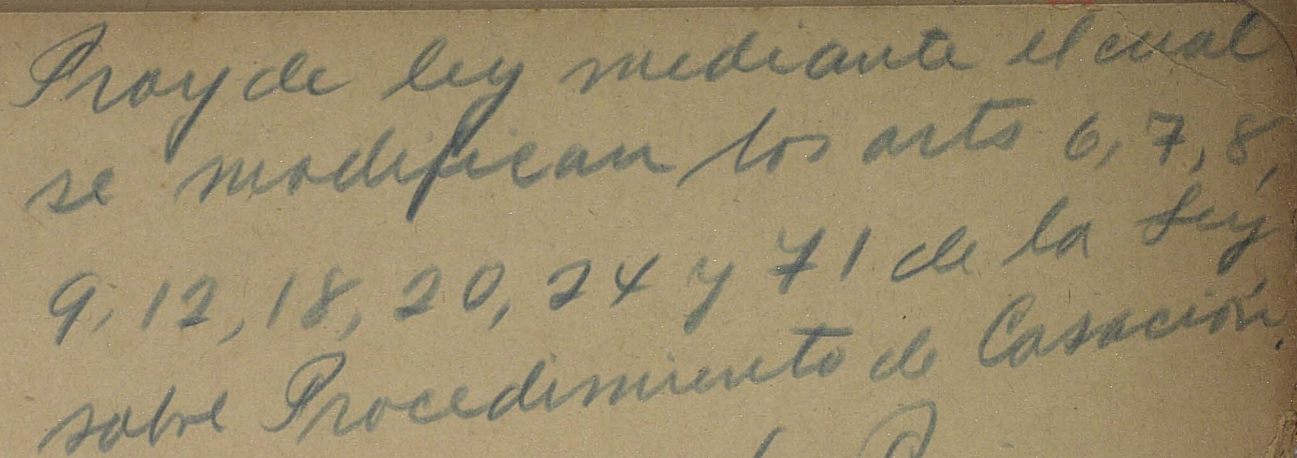 Proy de ley mediante el cual
se modifican los arts 6, 7, 8,
9, 12, 18, 20, 24 y 71 de la Ley
sobre Procedimiento de Casación.